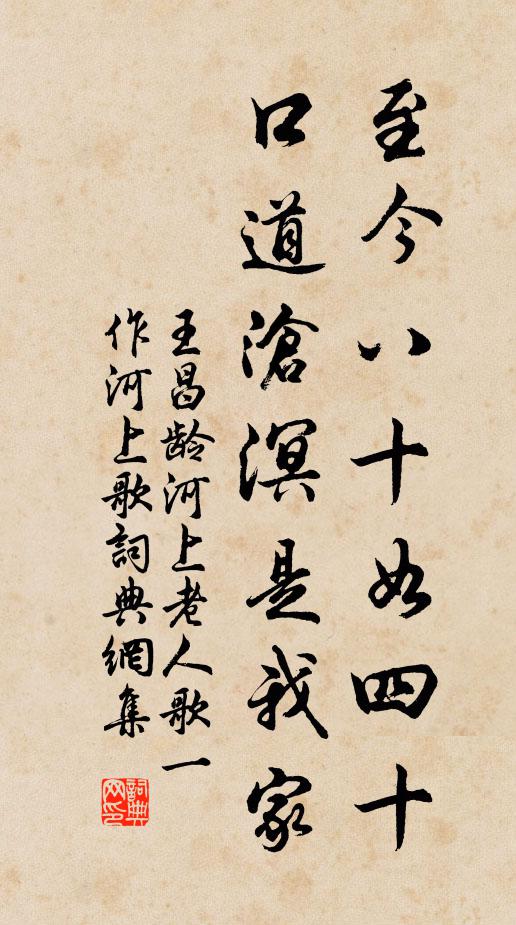 至今八十如四十
口道滄溟是我家
王昌齡河上老人歌一
作河上歌詞典網集
詞典网印